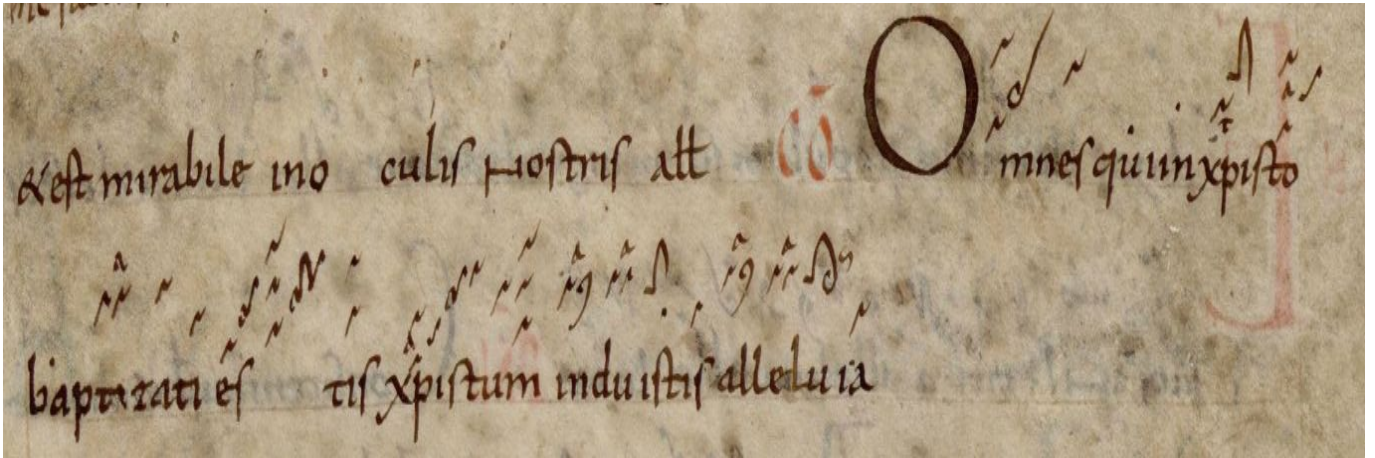 &est mirabile ino culis Nostris all cō Omnes qui in xp̄isto
baptizati es tis xp̄istum induistis alleluia